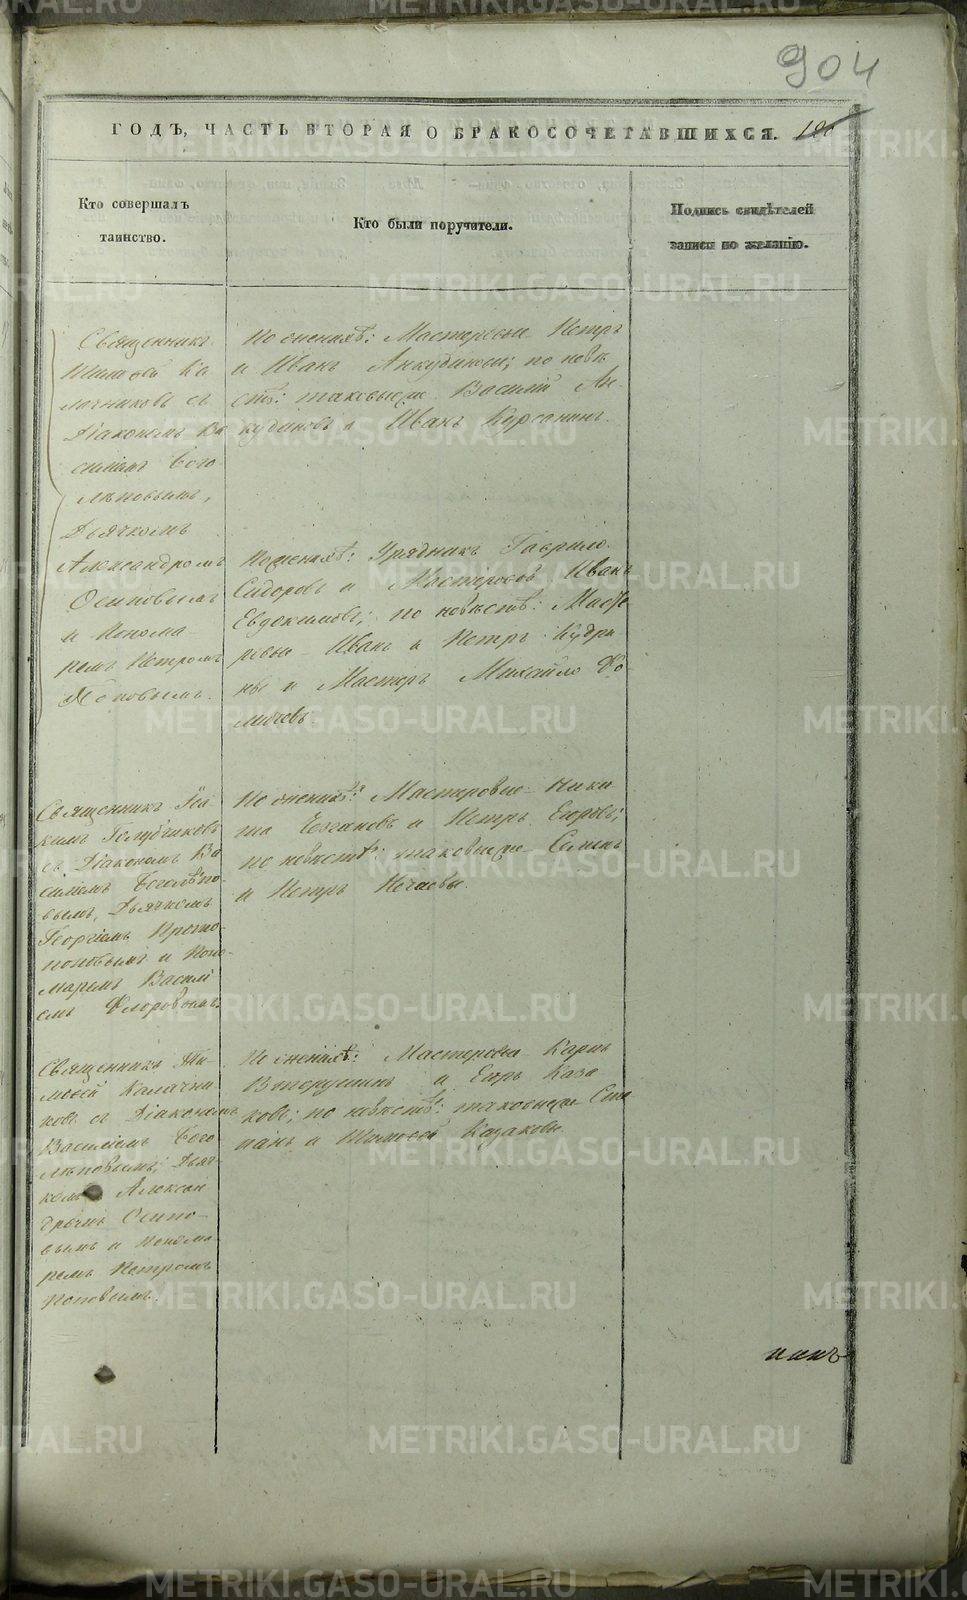 904
ГОДЪ, ЧАСТЬ ВТОРАЯ О БРАКОСОЧЕТАВШИХСЯ.
Кто совершалъ
таинство.
Кто были поручители.
Подпись свидѣтелей
записи по желанію.
Священникъ
Тимоѳей Ка
лачниковъ съ
Діакономъ Ва
силіемъ Бого
лѣповымъ,
Дьячкомъ
Александромъ
Осиповымъ
и Понома
ремъ Петромъ
Поповымъ.
По женихѣ: Мастеровые Петръ
и Иванъ Анкудиновы; по невѣ
стѣ: таковые же Василій Ан
кудиновъ и Иванъ Корсанинъ.
По женихѣ: Урядникъ Гаврило
Сидоровъ и Мастеровой Иванъ
Евдокимовъ; по невѣстѣ: Масте
ровые Иванъ и Петръ Кудри
ны и Мастеръ Михайло Фо
мичевъ.
Священникъ Іоа
кимъ Голубчиковъ
съ Діакономъ Ва
силіемъ Боголѣпо
вымъ, Дьячкомъ
Георгіемъ Прото
поповымъ и Поно
маремъ Василі
емъ Флоровымъ.
По женихѣ: Мастеровые Ники
та и Петръ Егоровъ;
по невѣстѣ: таковые же Семенъ
и Петръ Нечаевы.
Священникъ Ти
моѳей Калачни
ковъ съ Діакономъ
Василіемъ Бого
лѣповымъ, Дьяч
комъ Алексан
дромъ Осипо
вымъ и Понома
ремъ Петромъ
Поповымъ.
По женихѣ: Мастеровые Карпъ
и Егоръ Каза
ковъ; по невѣстѣ: таковые же Сте
панъ и Тимоѳей Казаковы.
METRIKI.GASO-URAL.RU